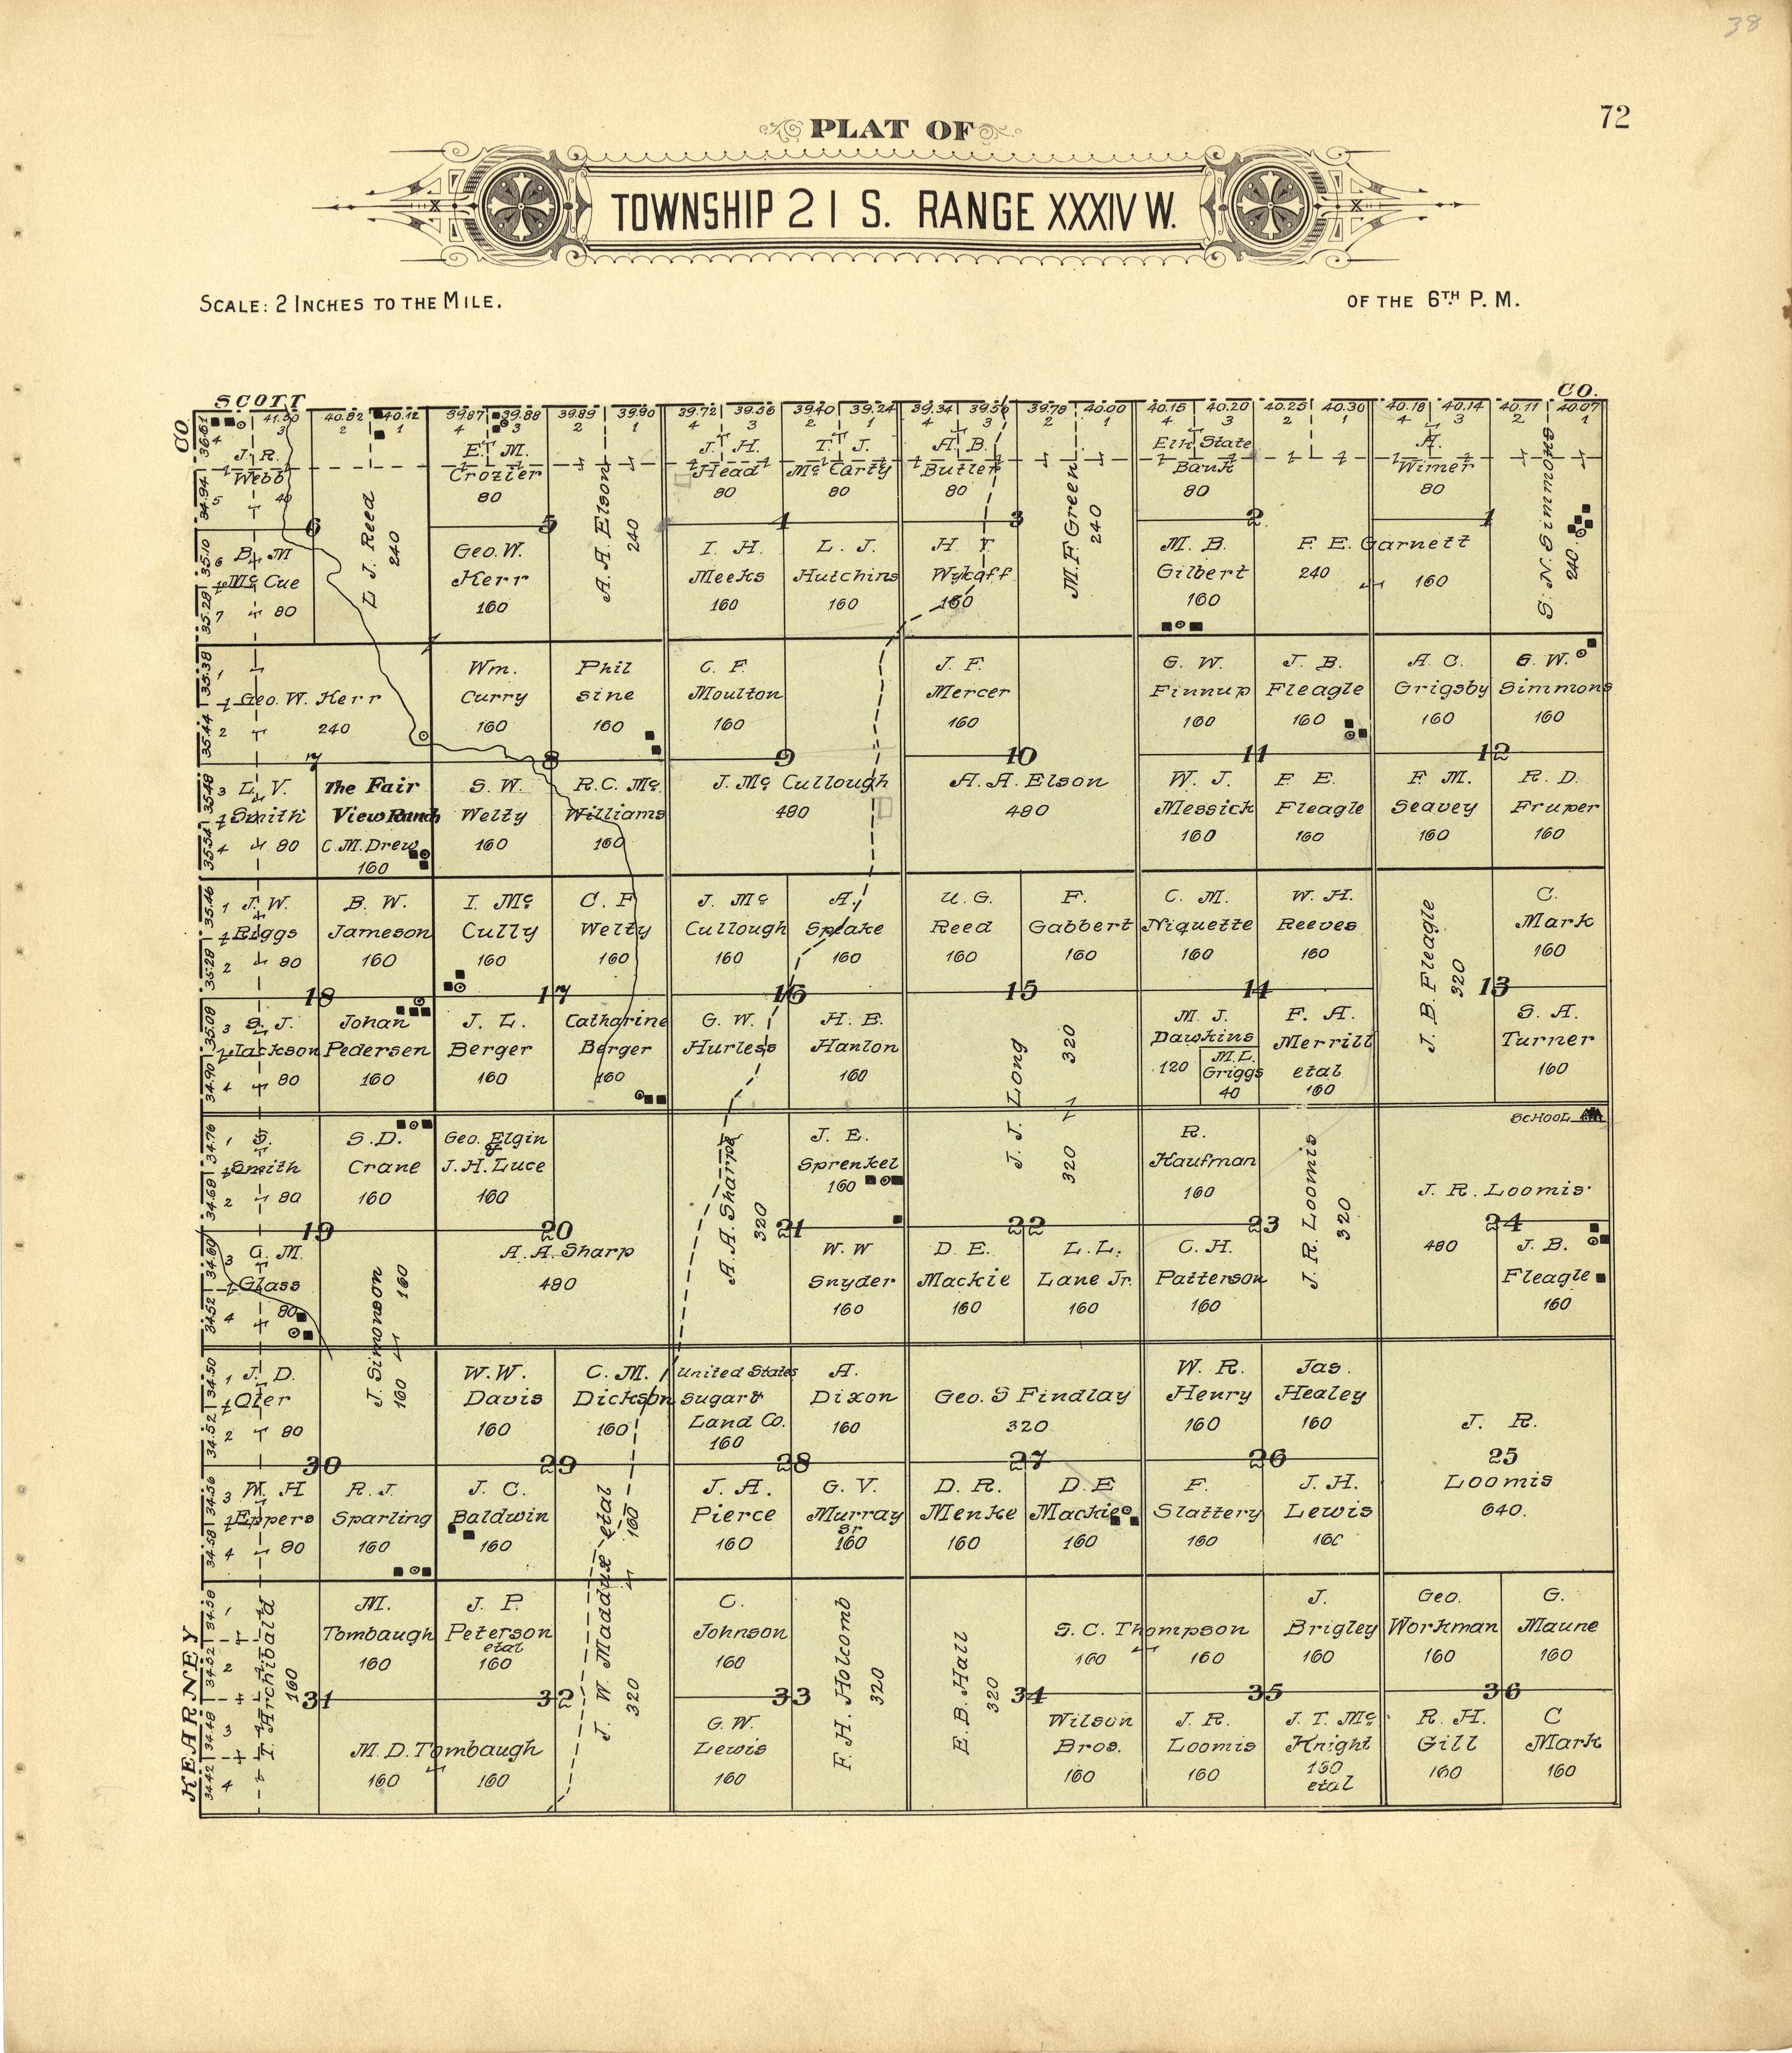 38
72
PLAT OF
TOWNSHIP 21 S. RANGE XXXIV W.
SCALE: 2 INCHES TO THE MILE.
OF THE 6TH P. M.
SCOTT CO.
CO
41.50 40.82 40.12 39.87 39.88 39.89 39.90 39.72 39.56 39.40 39.24 39.34 39.56 39.78 40.00 40.15 40.20 40.25 40.30 40.18 40.14 40.11 40.07
3 2 1 4 3 2 1 4 3 2 1 4 3 2 1 4 3 2 1 4 3 2 1
36.61
4
J. R.
Webb
40
34.94
5
L J. Reed
240
E. M.
Crozier
80
A. A. Elson
240
J. H.
Head
80
T. J.
Mc Carty
80
A. B.
Butler
80
M. F. Green
240
Elk State
Bank
80
A.
Wimer
80
S. N. Simmons
240
6 5 4 3 2 1
35.10
6
B. M
Mc Cue
80
35.28
7
Geo. W.
Kerr
160
I. H.
Meeks
160
L. J.
Hutchins
160
H T
Wykoff
160
M. B.
Gilbert
160
F. E. Garnett
240
160
35.38
1
Geo. W. Kerr
240
35.44
2
Wm.
Curry
160
Phil
Sine
160
C. F.
Moulton
160
J. F.
Mercer
160
G. W.
Finnup
160
J. B.
Fleagle
160
A. C.
Grigsby
160
G. W.
Simmons
160
7 8 9 10 11 12
35.48
3
L. V.
Smith
80
35.54
4
The Fair
View Ranch
C. M. Drew
160
S. W.
Welty
160
R. C. Mc
Williams
160
J. Mc Cullough
480
A. A. Elson
480
W. J.
Messick
160
F. E.
Fleagle
160
F. M.
Seavey
160
R. D.
Fruper
160
35.46
1
J. W.
Biggs
80
35.28
2
B. W.
Jameson
160
I. Mc
Cully
160
C. F
Welty
160
J. Mc
Cullough
160
A.
Speake
160
U. G.
Reed
160
F.
Gabbert
160
C. M.
Niquette
160
W. H.
Reeves
160
J. B. Fleagle
320
C.
Mark
160
18 17 16 15 14 13
35.08
3
S. J.
Jackson
80
34.90
4
Johan
Pedersen
160
J. L.
Berger
160
Catharine
Berger
160
G. W.
Hurless
H. E.
Hanlon
160
J. J. Long
320
320
M. J.
Dawkins
120
M. L.
Griggs
40
F. A.
Merrill
etal
160
S. A.
Turner
160
SCHOOL
34.76
1
S.
Smith
80
34.68
2
S. D.
Crane
160
Geo. Elgin
&
J. H. Luce
160
A. A. Sharp
320
J. E.
Sprenkel
160
R.
Kaufman
160
J. R. Loomis
320
J. R. Loomis
480
19 20 21 22 23 24
34.60
3
G. M.
Glass
80
34.52
4
J. Simonson
160
160
A. A. Sharp
480
W. W
Snyder
160
D. E.
Mackie
160
L. L.
Lane Jr.
160
C. H.
Patterson
160
J. B.
Fleagle
160
34.50
1
J. D.
Oler
80
34.52
2
W. W.
Davis
160
C. M.
Dickson
160
United States
Sugar &
Land Co.
160
A.
Dixon
160
Geo. S Findlay
320
W. R.
Henry
160
Jas.
Healey
160
J. R.
25
Loomis
640.
30 29 28 27 26
34.56
3
W. H
Eppers
80
34.58
4
R. J.
Sparling
160
J. C.
Baldwin
160
J. W. Maddux etal
160
320
J. A.
Pierce
160
G. V.
Murray
Sr
160
D. R.
Menke
160
D. E
Mackie
160
F.
Slattery
160
J. H.
Lewis
160
KEARNEY
34.58
1
34.52
2
I. Archibald
160
M.
Tombaugh
160
J. P.
Peterson
etal
160
C.
Johnson
160
F. H. Holcomb
320
E. B. Hall
320
S. C. Thompson
160
160
J.
Brigley
160
Geo.
Workman
160
G.
Maune
160
31 32 33 34 35 36
34.48
3
34.42
4
M. D. Tombaugh
160
160
G. W.
Lewis
160
Wilson
Bros.
160
J. R.
Loomis
160
J. T. Mc
Knight
160
etal
R. H.
Gill
160
C
Mark
160